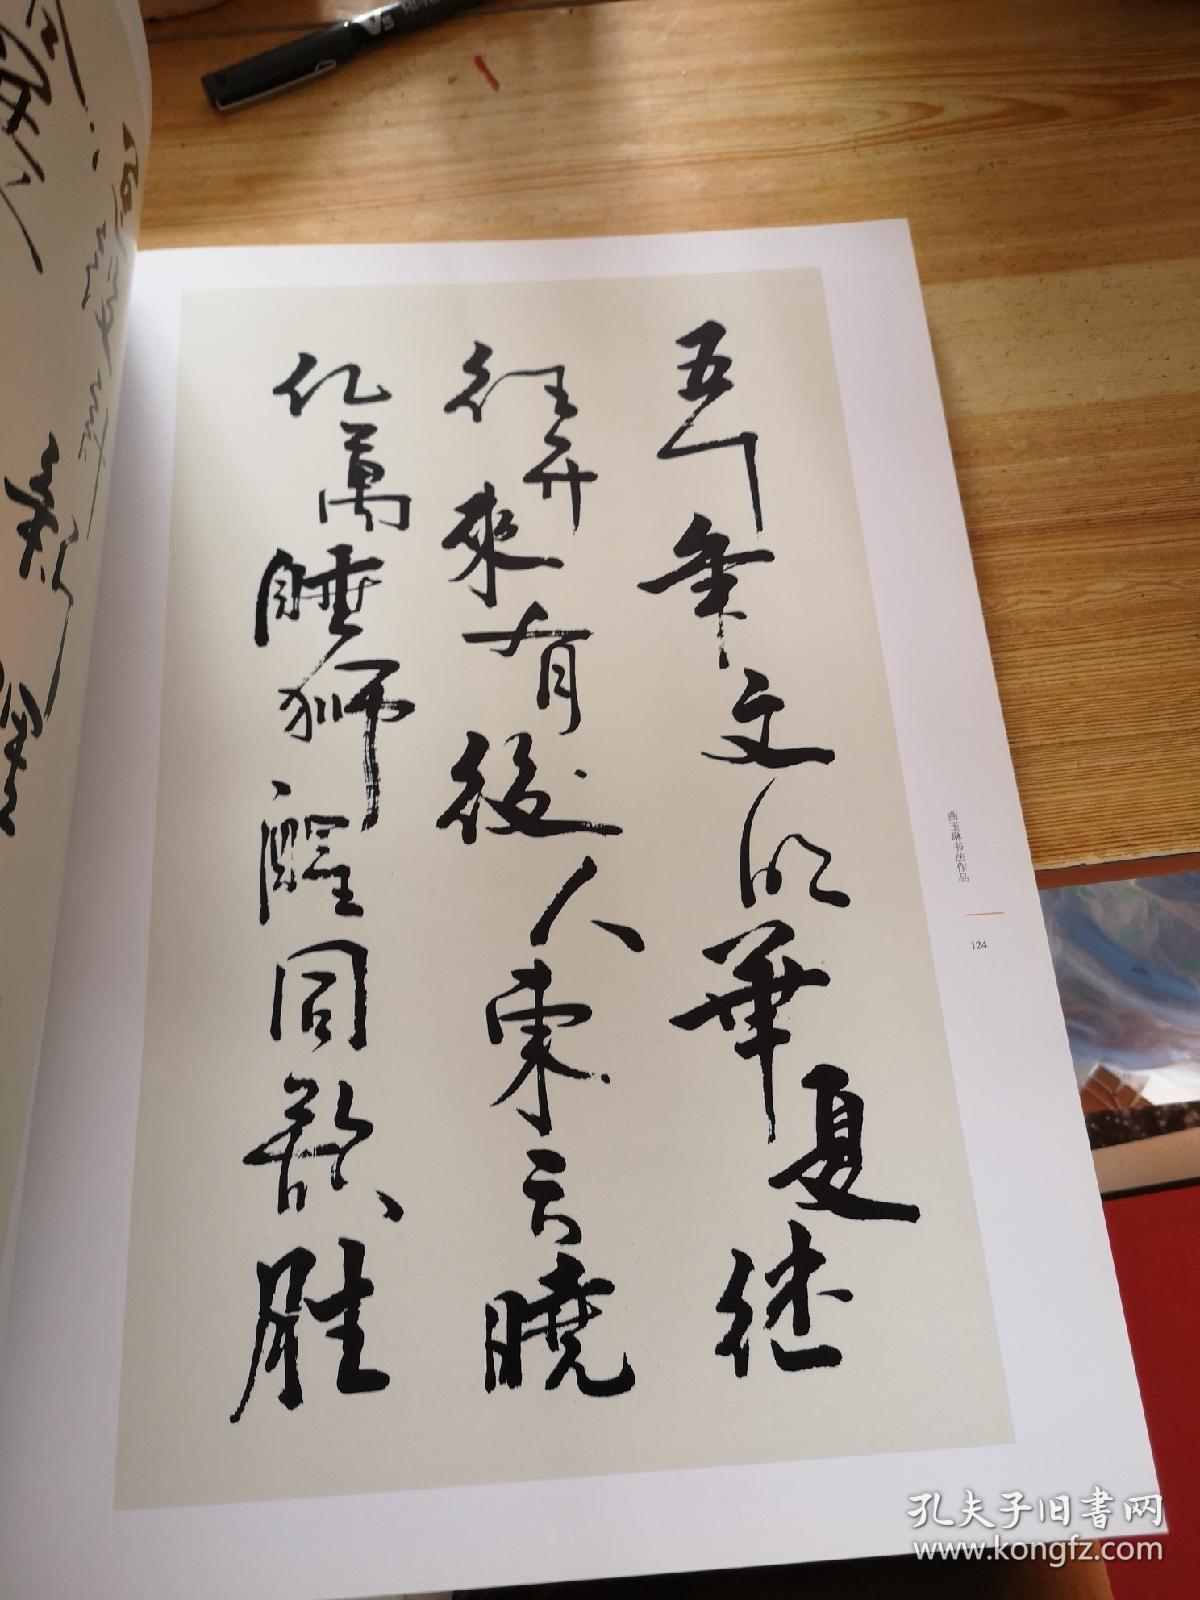 五千年文明華夏继
往开來有後人東方曉
亿萬睡狮醒同歌胜
曲玉琳书法作品
124
孔夫子旧书网
www.kongfz.com